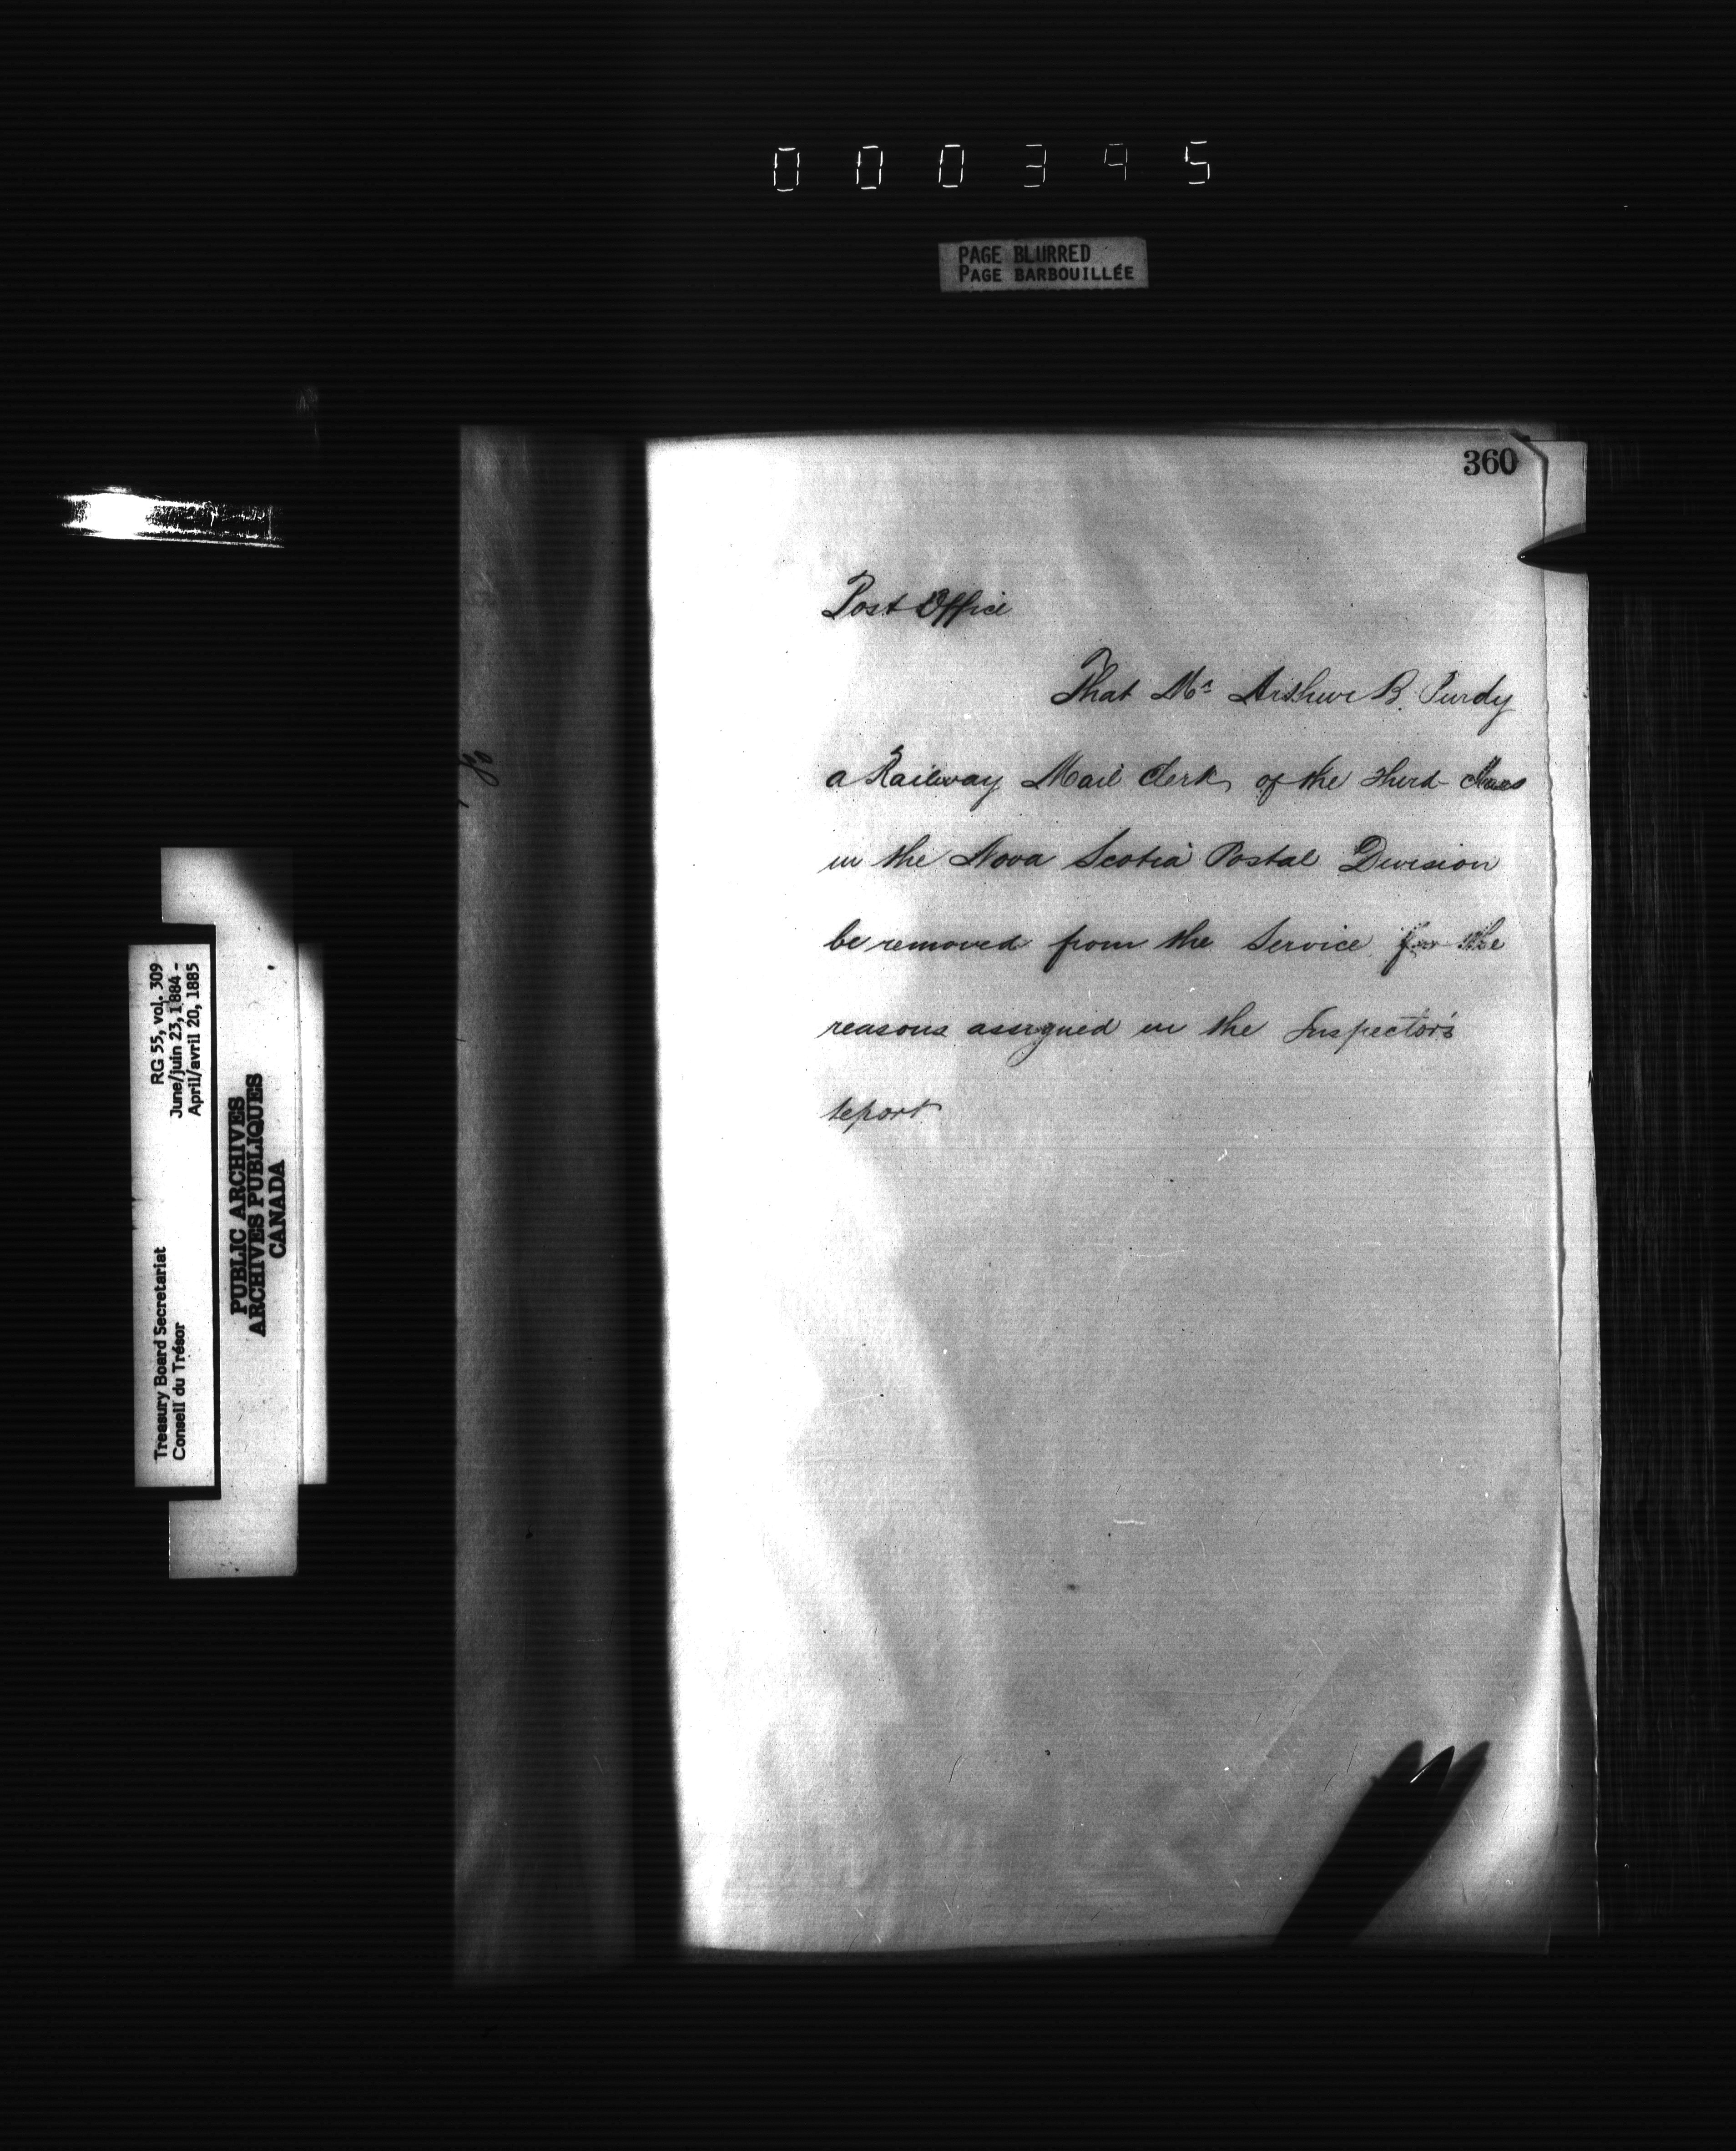 000395
PAGE BLURRED
PAGE BARBOUILLÉE
360
Post Office
That Mr Arthur B. Purdy
a Railway Mail Clerk of the Third Class
in the Nova Scotia Postal Division
be removed from the Service for the
reasons assigned in the Inspector's
report
RG 55, vol. 309
June/juin 23, 1884 -
April/avril 20, 1885
Treasury Board Secretariat
Conseil du Trésor
PUBLIC ARCHIVES
ARCHIVES PUBLIQUES
CANADA